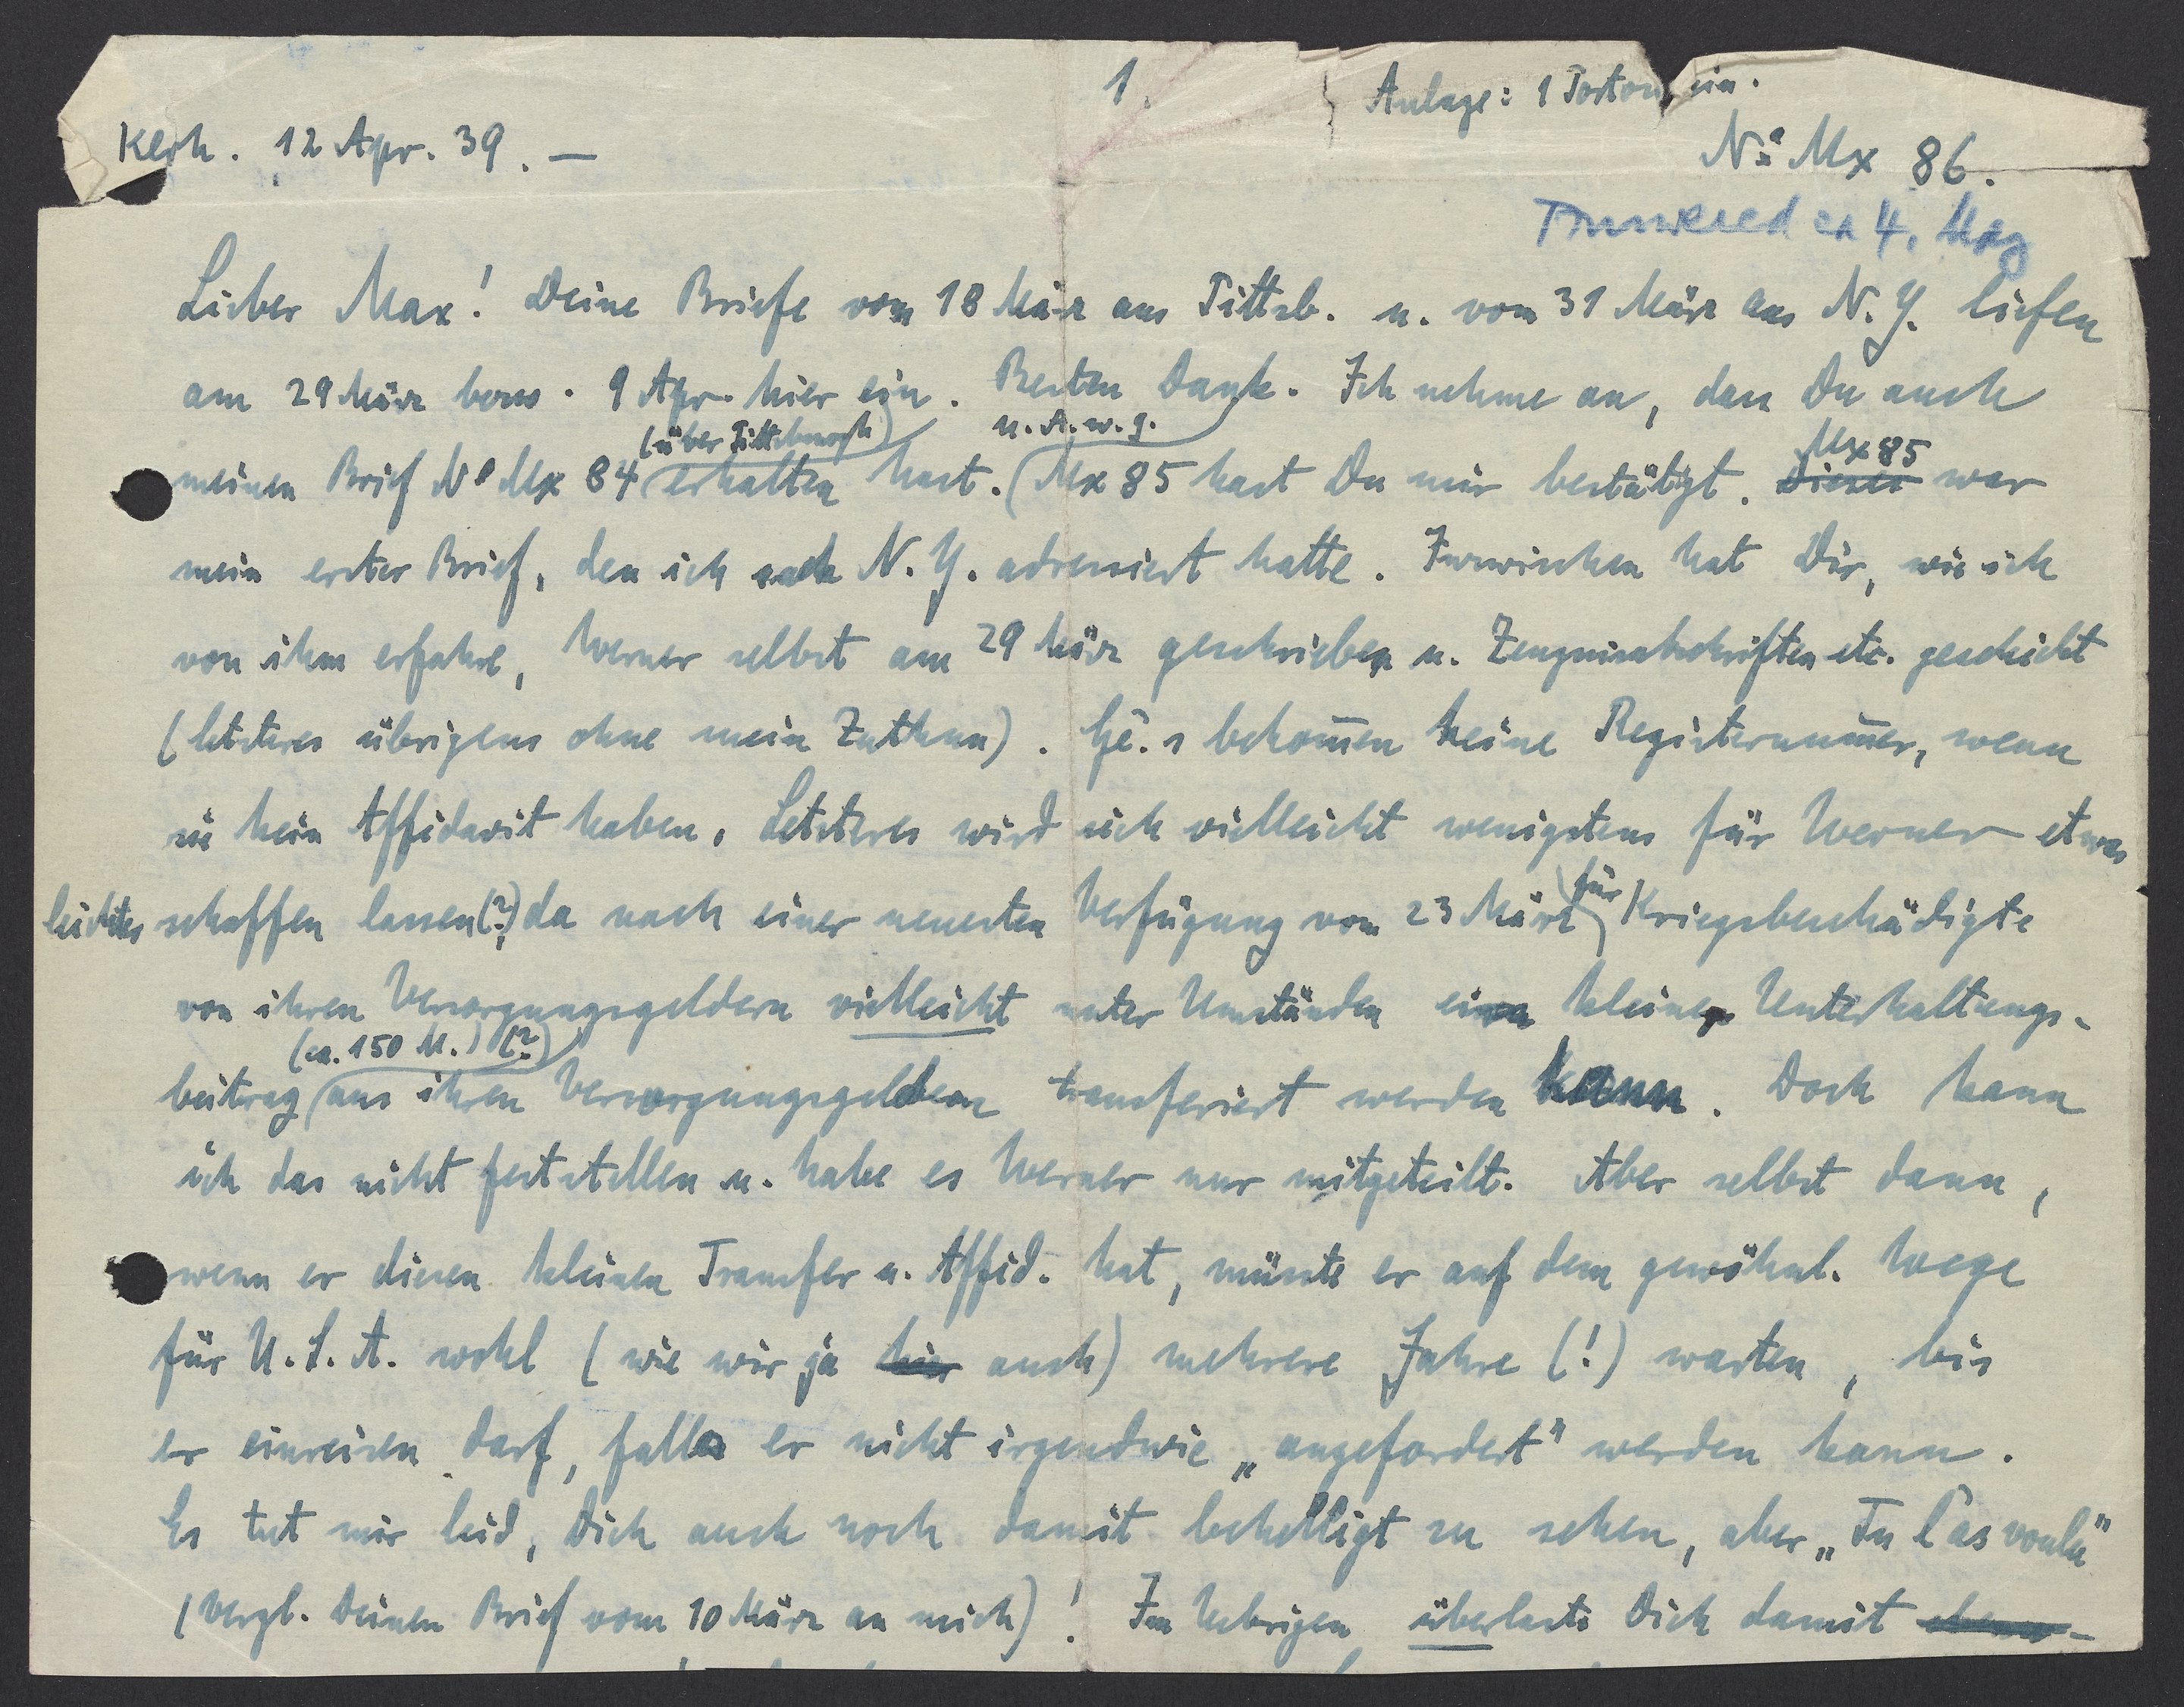 1.
Anlage: 1 Portoschein.
Klrh. 12 Apr. 39. —
No Mx 86.
Answered on 4. May
Lieber Max! Deine Briefe vom 18 März aus Pittsb. u. vom 31 März aus N.Y. liefen
am 29 März bezw. 9 Apr. hier ein. Besten Dank. Ich nehme an, dass Du auch
(über Pittsburgh) u. A. w. g. Mx 85
meinen Brief No Mx 84 erhalten hast. (Mx 85 hast Du mir bestätigt. Dieses war
mein erster Brief, den ich nach N.Y. adressiert hatte. Inzwischen hat Dir, wie ich
von ihm erfahre, Werner selbst am 29 März geschrieben u. Zeugnisabschriften etc. geschickt
(letzteres übrigens ohne mein Zuthun). Gê.s bekom̅en keine Registernum̅er, wenn
sie kein Affidavit haben. Letzteres wird sich vielleicht wenigstens für Werner etwas
leichter schaffen lassen (?) da nach einer neuesten Verfügung vom 23 März für Kriegsbeschädigte
von ihren Versorgungsgeldern vielleicht unter Umständen ein kleiner Unterhaltungs-
(ca. 150 M.) (?)
beitrag aus ihren Versorgungsgeldern transferiert werden kann. Doch kann
ich das nicht feststellen u. habe es Werner nur mitgeteilt. Aber selbst dann,
wenn er diesen kleinen Transfer u. Affid. hat, müsste er auf dem gewöhnl. Wege
für U.S.A. wohl (wie wir ja hier auch) mehrere Jahre (!) warten, bis
er einreisen darf, falls er nicht irgendwie „angefordert" werden kann.
Es tut mir leid, Dich auch noch damit behelligt zu sehen, aber „Tu l'as voulu"
(vergl. Deinen Brief vom 10 März an mich)! Im Uebrigen überlaste Dich damit